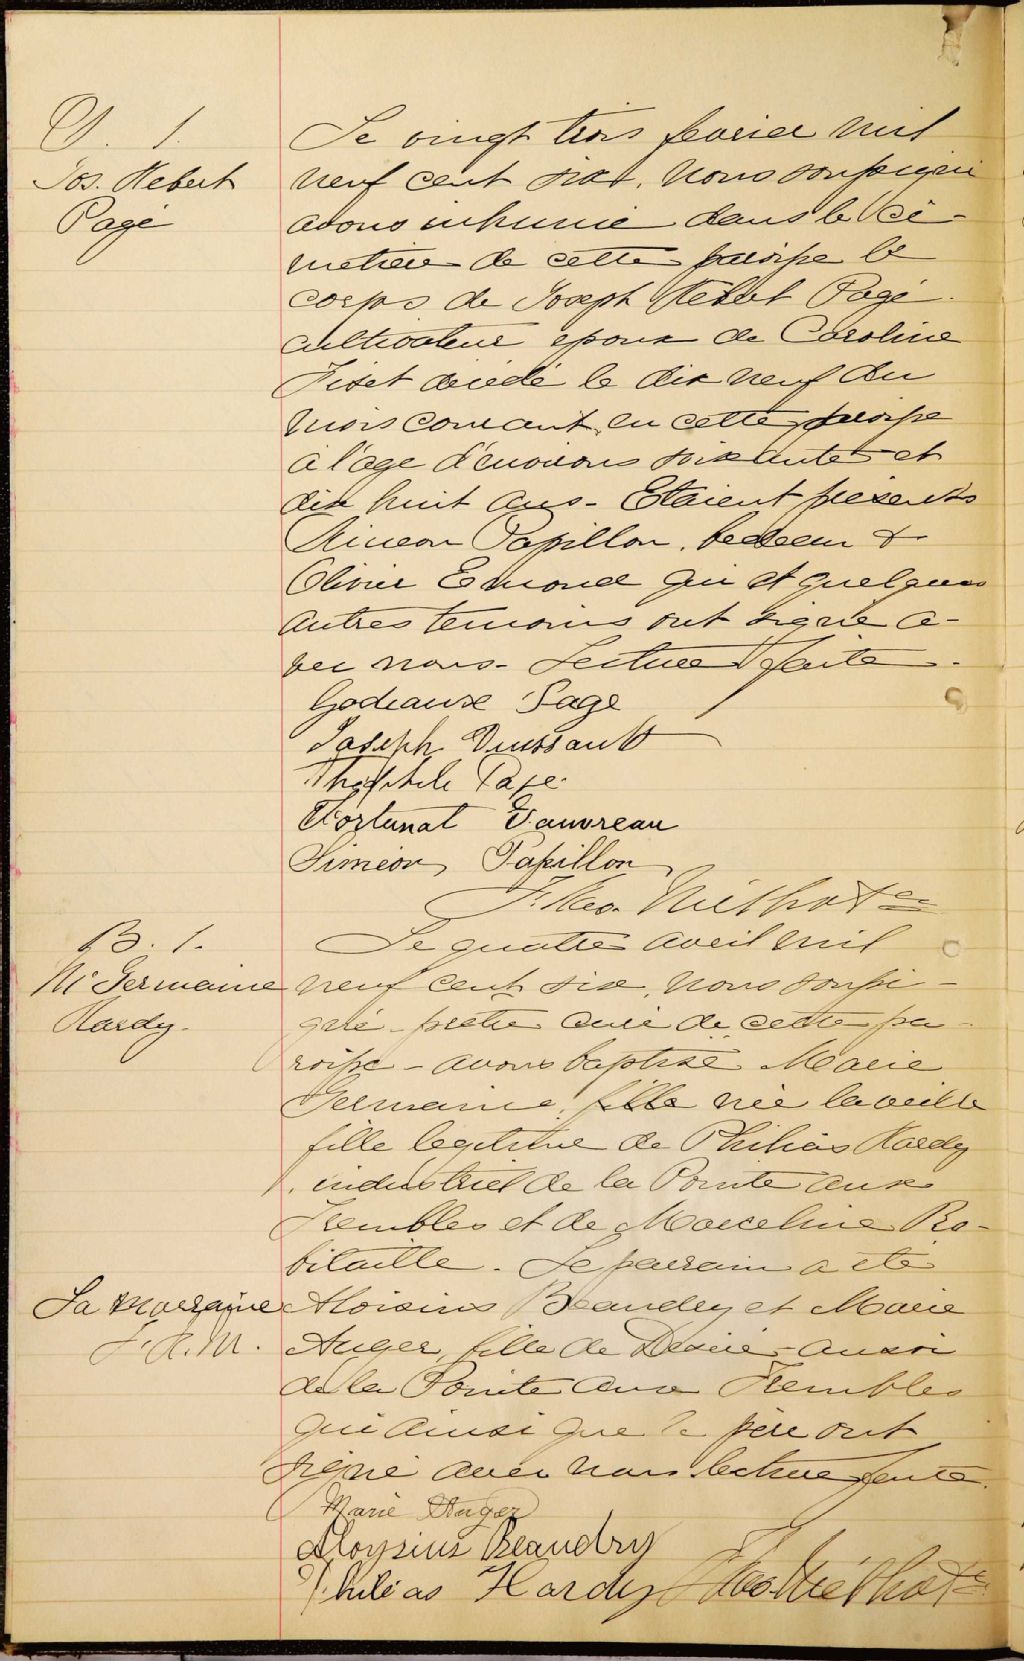 S. 1.
Jos. Hebert
Pagé
Le vingt trois fevrier mil
neuf cent six, nous soussigné
avons inhumé dans le ci-
metière de cette paroisse le
corps de Joseph Hebert Pagé
cultivateur epoux de Caroline
Fiset décédé le dix neuf du
mois courant en cette paroisse
à l'age d'environs soixante et
dix huit ans - Etaient présents
Simeon Papillon, bedeau &
Olivier Emond qui et quelques
autres temoins ont signé a-
vec nous - Lecture faite -
Page
Joseph Dussault
Théophile Page
Fortunat Gauvreau
Simeon Papillon
F. Méthot Ptre
B. 1.
M^e Germaine
Hardy -
Le quatre avril mil
neuf cent six, nous soussi-
gné - prêtre curé de cette pa-
roisse - avons baptisé Marie
Germaine, fille née la veille
fille legitime de Philias Hardy
industriel de la Pointe aux
Trembles et de Marceline Ro-
bitaille - Le parrain a été
La marraine
F. X. M.
Aloisius Beaudry et Marie
Auger, fille de Desiré - aussi
de la Pointe aux Trembles
qui ainsi que le père ont
signé avec nous lecture faite.
Marie Auger
Aloysius Beaudry
Philéas Hardy Méthot Ptre